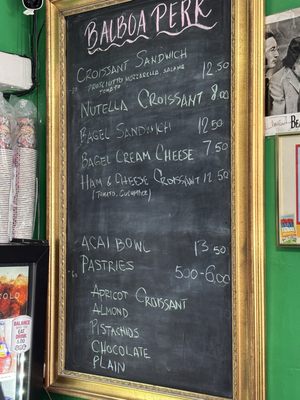 BALBOA PERK
CROISSANT SANDWICH 12.50
PROSCIUTTO MOZZARELLA SALAMI
TOMATO
NUTELLA CROISSANT 8.00
BAGEL SANDWICH 12.50
BAGEL CREAM CHEESE 7.50
HAM & CHEESE CROISSANT 12.50
(TOMATO, CUCUMBER)
ACAI BOWL 13.50
PASTRIES 5.00-6.00
APRICOT CROISSANT
ALMOND
PISTACHIOS
CHOCOLATE
PLAIN
COLD
BALANCE
EAT
DRINK